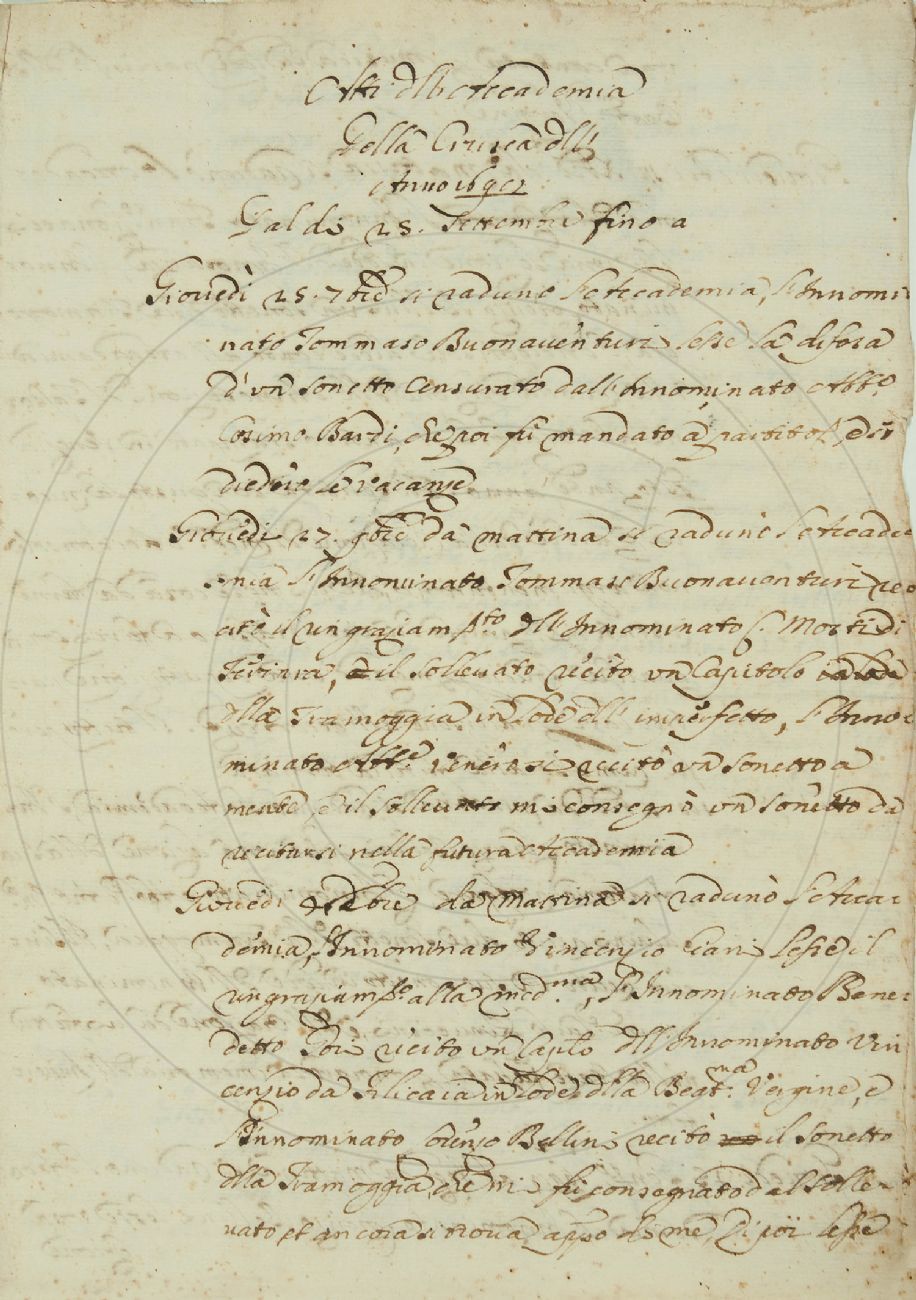 Atti dll'Accademia
Della Crusca dell'
Anno
Dal dì 25. Settembre fino a
Giovedì 25. 7bre si radunò l'Accademia, l'Innomi
nato Tommaso Buonaventuri lesse la difesa
d'un sonetto censurato dall'Innominato Abb.e
Cosimo Bardi, che poi fù mandato à partito, e si
diedero le vacanze
Giovedì 27. 9bre da mattina si radunò l'Accade
mia l'Innominato Tommaso Buonaventuri re
citò il ringraziam.to dll'Innominato Morti di
e il Sollevato recitò un Capitolo in lode
dlla Tramoggia in lode dll'imperfetto, l'Inno
minato Abb.e recitò un sonetto a
mente, e il Sollevato mi consegnò un sonetto da
recitarsi nella futura Accademia
Giovedì da mattina si radunò l'Acca
demia, l'Innominato Vincenzio lesse il
ringraziam.to alla med.ma, l'Innominato Bene
detto recitò un Cap.lo dll'Innominato Vin
cenzio da Filicaia in lode dlla Beat.ma Vergine, e
l'Innominato Lorenzo Bellini recitò il sonetto
dlla Tramoggia, che mi fù consegnato dal Solle
vato et ancora si trova app.o di me, Di poi lesse